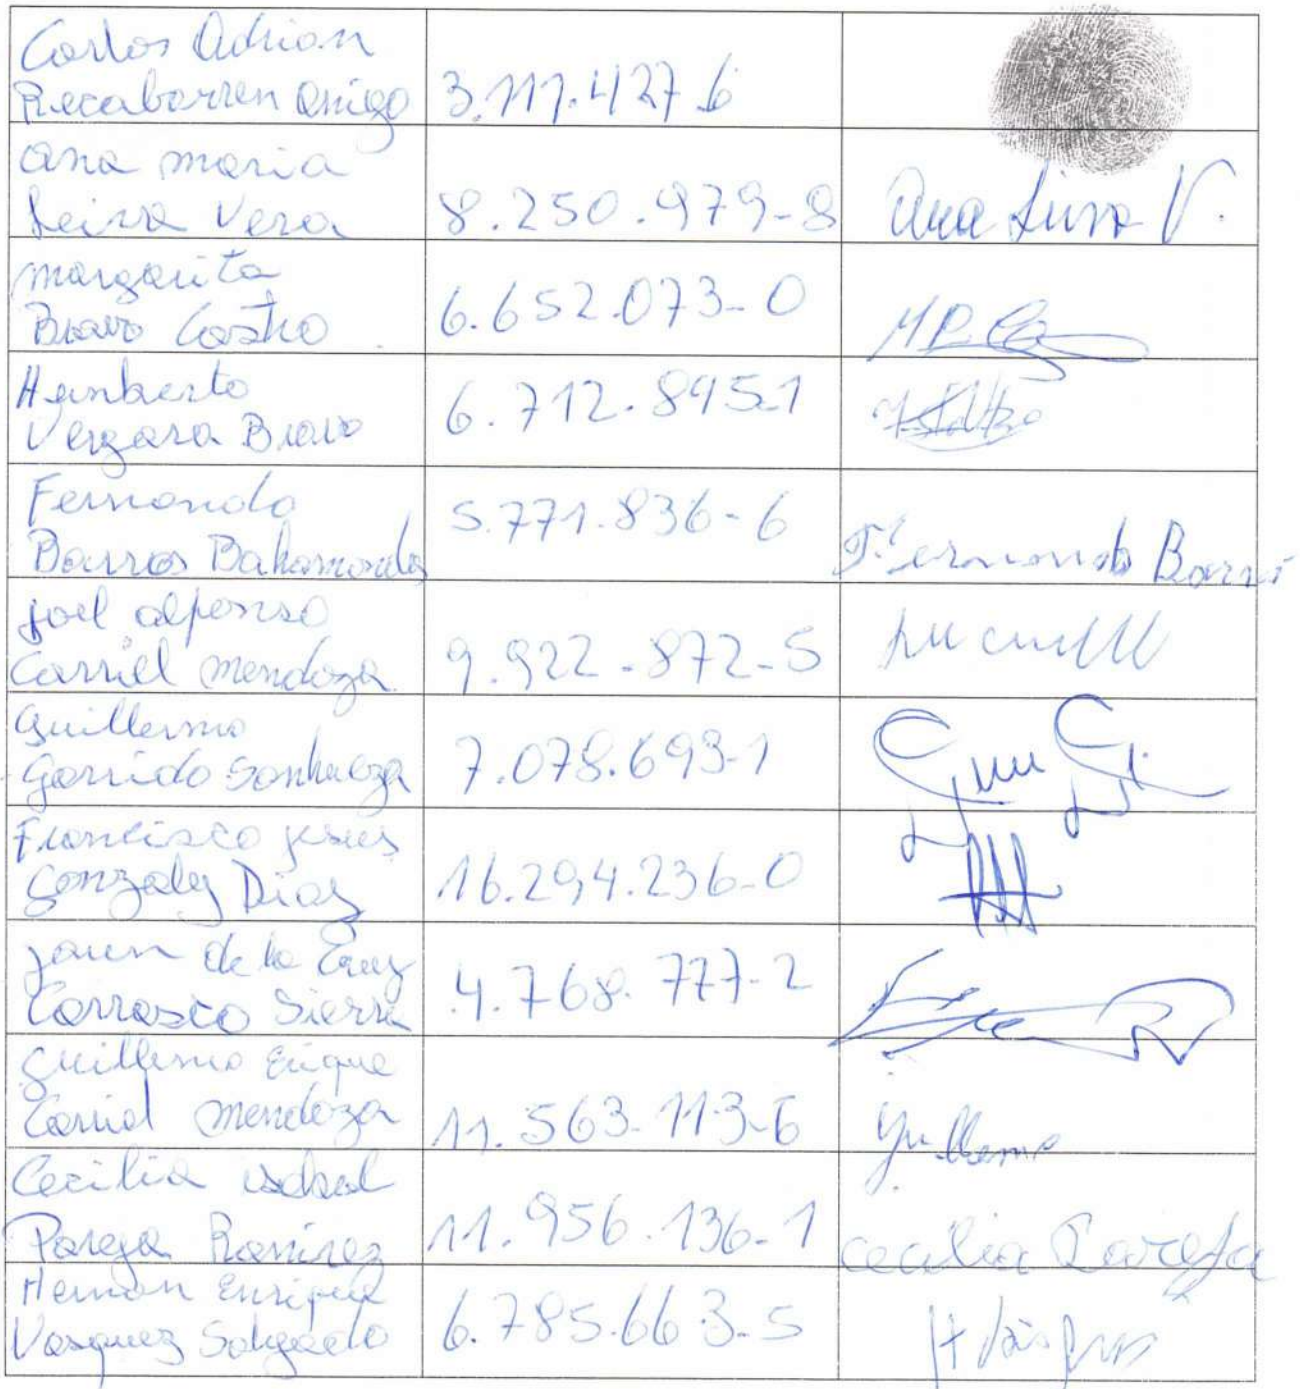 Carlos Adrian
Recabarren Amigo 3.117.427-6
ana maria
Leiva Vera 8.250.979-8 Ana Leiva V.
margarita
Bravo Castro 6.652.073-0
Humberto
Vergara Bravo 6.712.895-1
Fernando
Barros Bahamondes 5.771.836-6 Fernando Barros
joel alfonso
Carriel mendoza 9.922.872-5
Guillermo
Garrido Sanhueza 7.078.693-1
Francisco jesus
Gonzalez Diaz 16.294.236-0
juan de la Cruz
Carrasco Sierra 4.768.777-2
Guillermo Erique
Carriel mendoza 11.563.113-6 Guillermo
Cecilia isabel
Pareja Ramirez 11.956.136-1 Cecilia Pareja
Hernan Enrique
Vasquez Salgado 6.785.663-5